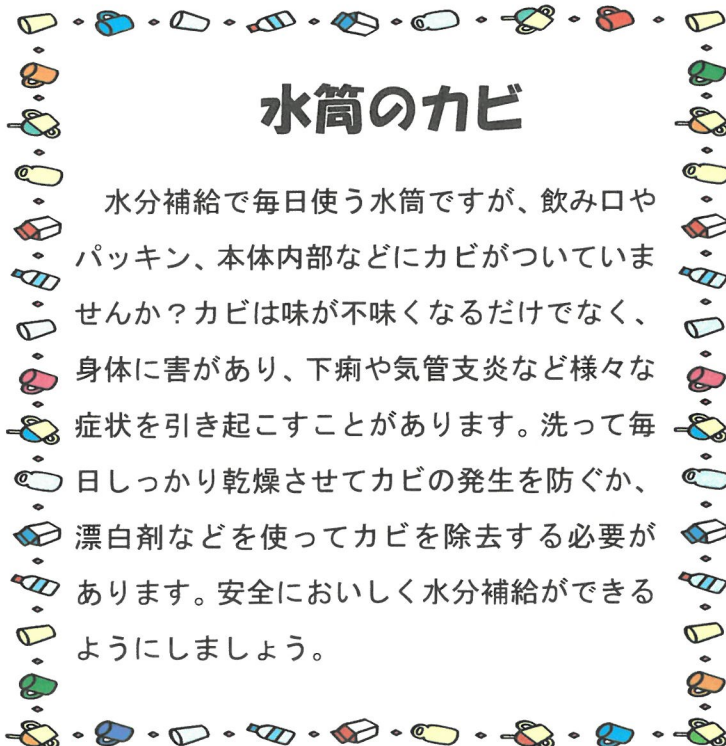 水筒のカビ
水分補給で毎日使う水筒ですが、飲み口や
パッキン、本体内部などにカビがついていま
せんか？カビは味が不味くなるだけでなく、
身体に害があり、下痢や気管支炎など様々な
症状を引き起こすことがあります。洗って毎
日しっかり乾燥させてカビの発生を防ぐか、
漂白剤などを使ってカビを除去する必要が
あります。安全においしく水分補給ができる
ようにしましょう。